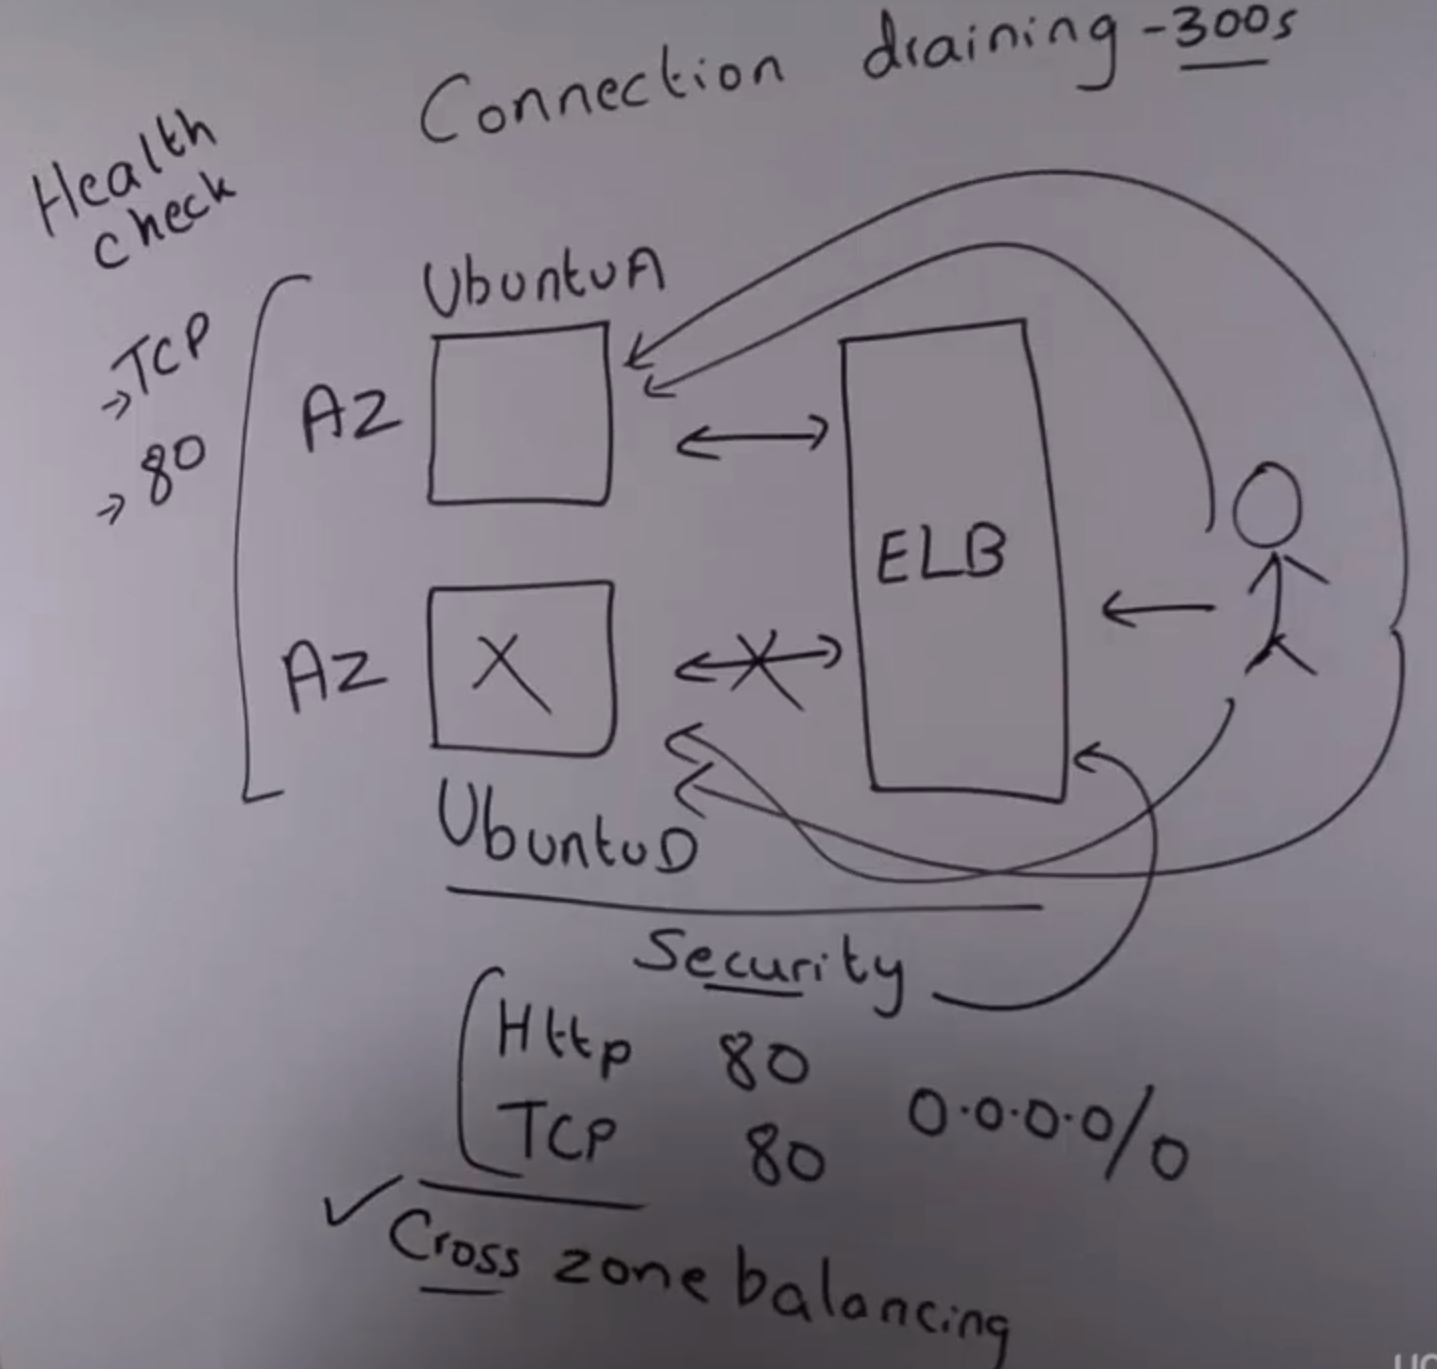 Connection draining - 300s
Health
check
→ TCP
→ 80
UbuntuA
AZ
ELB
AZ
X
X
UbuntuD
Security
Http 80
TCP 80 0.0.0.0/0
✓ Cross zone balancing